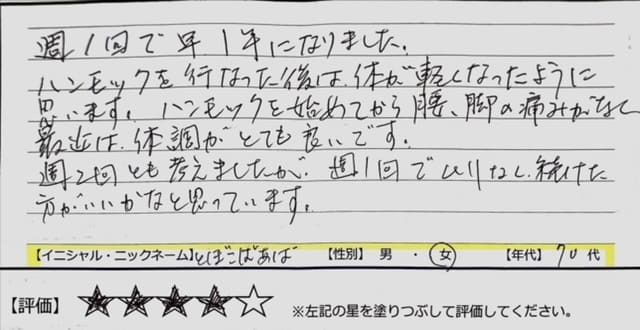 週1回で早1年になりました。
ハンモックを行なった後は、体が軽くなったように
思います。ハンモックを始めてから腰、脚の痛みがなく
最近は、体調がとても良いです。
週2回とも考えましたが、週1回でムリなし、続けた
方がいいかなと思っています。
【イニシャル・ニックネーム】とぼこばあば 【性別】 男 ・ 女 【年代】 70 代
【評価】 ★★★★☆ ※左記の星を塗りつぶして評価してください。